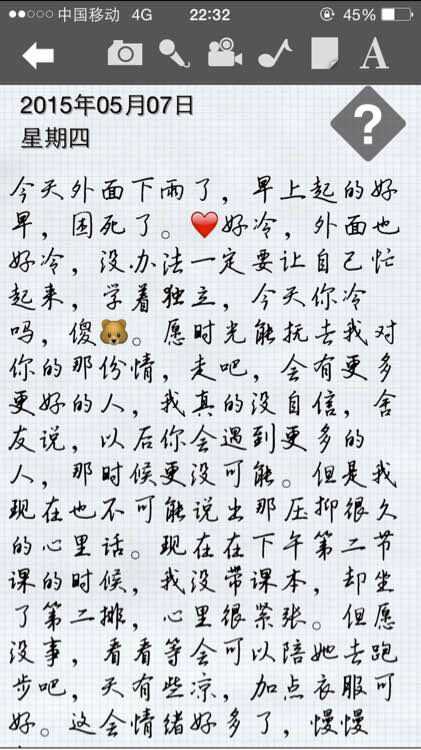 中国移动 4G 22:32 45%
A
2015年05月07日
星期四
?
今天外面下雨了，早上起的好
早，困死了。❤️好冷，外面也
好冷，没办法一定要让自己忙
起来，学着独立，今天你冷
吗，傻🐻。愿时光能抚去我对
你的那份情，走吧，会有更多
更好的人，我真的没自信，舍
友说，以后你会遇到更多的
人，那时候更没可能。但是我
现在也不可能说出那压抑很久
的心里话。现在在下午第二节
课的时候，我没带课本，却坐
了第二排，心里很紧张。但愿
没事，看看等会可以陪她去跑
步吧，天有些凉，加点衣服可
好。这会情绪好多了，慢慢